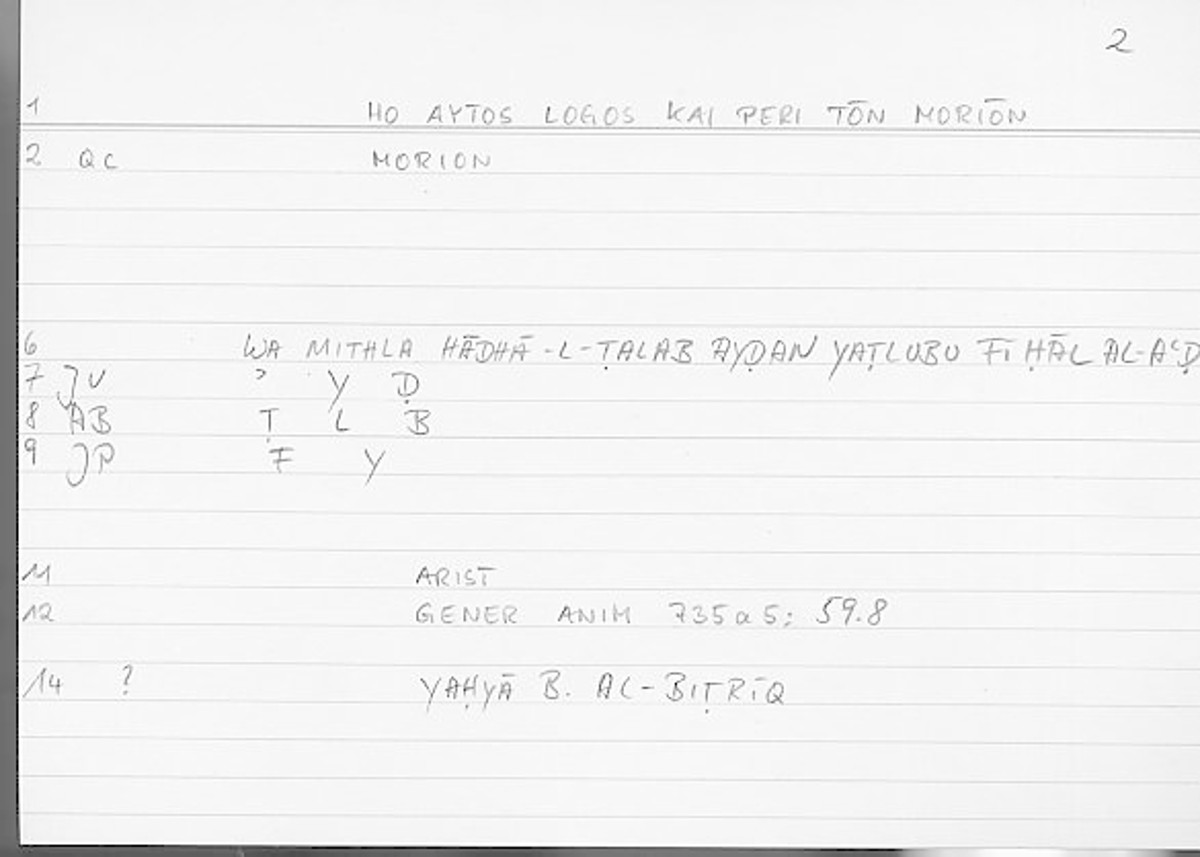 2
1 HO AYTOS LOGOS KAI PERI TŌN MORIŌN
2 QC MORION
6 WA MITHLA HĀDHĀ-L-ṬALAB AYḌAN YAṬLUBU FĪ ḤĀL AL-AʿḌ
7 JV ʾ Y Ḍ
8 AB Ṭ L B
9 JP F Y
11 ARIST
12 GENER ANIM 735a5; 59.8
14 ? YAḤYĀ B. AL-BIṬRĪQ